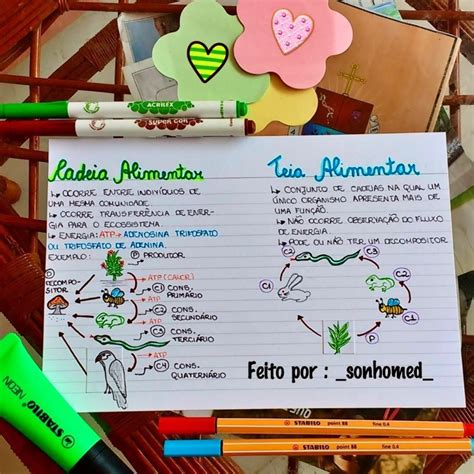 ACRILEX
SUPER COR
Cadeia Alimentar
↳ OCORRE ENTRE INDIVÍDUOS DE
UMA MESMA COMUNIDADE.
↳ OCORRE TRANSFERÊNCIA DE ENER-
GIA PARA O ECOSSISTEMA.
↳ ENERGIA: ATP → ADENOSINA TRIFOSFATO
OU TRIFOSFATO DE ADENINA.
EXEMPLO:
P PRODUTOR
DECOMPO-
SITOR
ATP (CALOR)
C1 CONS.
PRIMÁRIO
ATP
C2 CONS.
SECUNDÁRIO
ATP
C3 CONS.
TERCIÁRIO
ATP
C4 CONS.
QUATERNÁRIO
Teia Alimentar
↳ CONJUNTO DE CADEIAS NA QUAL UM
ÚNICO ORGANISMO APRESENTA MAIS DE
UMA FUNÇÃO.
↳ NÃO OCORRE OBSERVAÇÃO DO FLUXO
DE ENERGIA.
↳ PODE OU NÃO TER UM DECOMPOSITOR
C2
C3
C2
C1
C1
P
Feito por : _sonhomed_
STABILO NEON
STABILO point 88 fine 0.4
STABILO point 88 fine 0.4